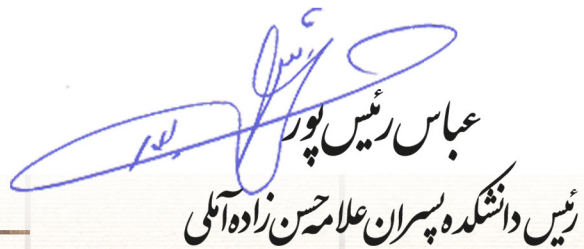 عباس رئیس پور
رئیس دانشکده پسران علامه حسن زاده آملی